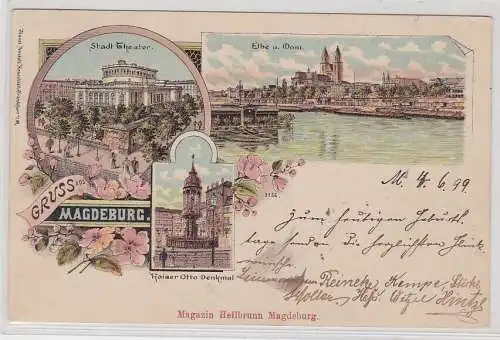 Stadt-Theater.
Elbe u. Dom.
GRUSS aus
MAGDEBURG.
Kaiser Otto Denkmal
M. 4/6.99
Zum heutigen Geburts
tage senden die herzlichsten Glück
wünsche
Reineke Kempe
Heß Witzel Hintze
Magazin Heilbrunn Magdeburg.